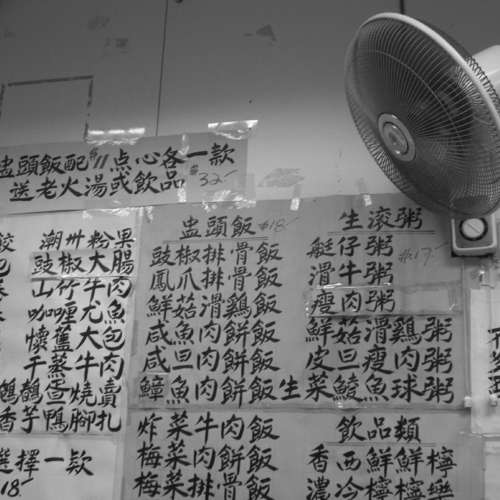 盅頭飯配#11点心各一款
送老火湯或飲品 #32
潮州粉果
豉椒大腸
山竹牛肉
咖喱尤魚
懷舊大包
干蒸牛肉
鵪鶉蛋燒賣
香芋鴨腳扎
選擇一款
18
盅頭飯 #18
豉椒排骨飯
鳳爪排骨飯
鮮菇滑鷄飯
咸魚肉餅飯
咸旦肉餅飯
鱆魚肉餅飯
炸菜牛肉飯
梅菜肉餅飯
梅菜排骨飯
生滾粥
艇仔粥 #17
滑牛粥
瘦肉粥
鮮菇滑鷄粥
皮旦瘦肉粥
生菜鯪魚球粥
飲品類
香西鮮鮮檸
濃冷檸檸樂